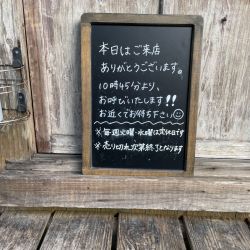 本日はご来店
ありがとうございます。
10時45分より、
お呼びいたします!!
お近くでお待ち下さい☺
※毎週火曜・水曜は定休日です
※売り切れ次第終了となります